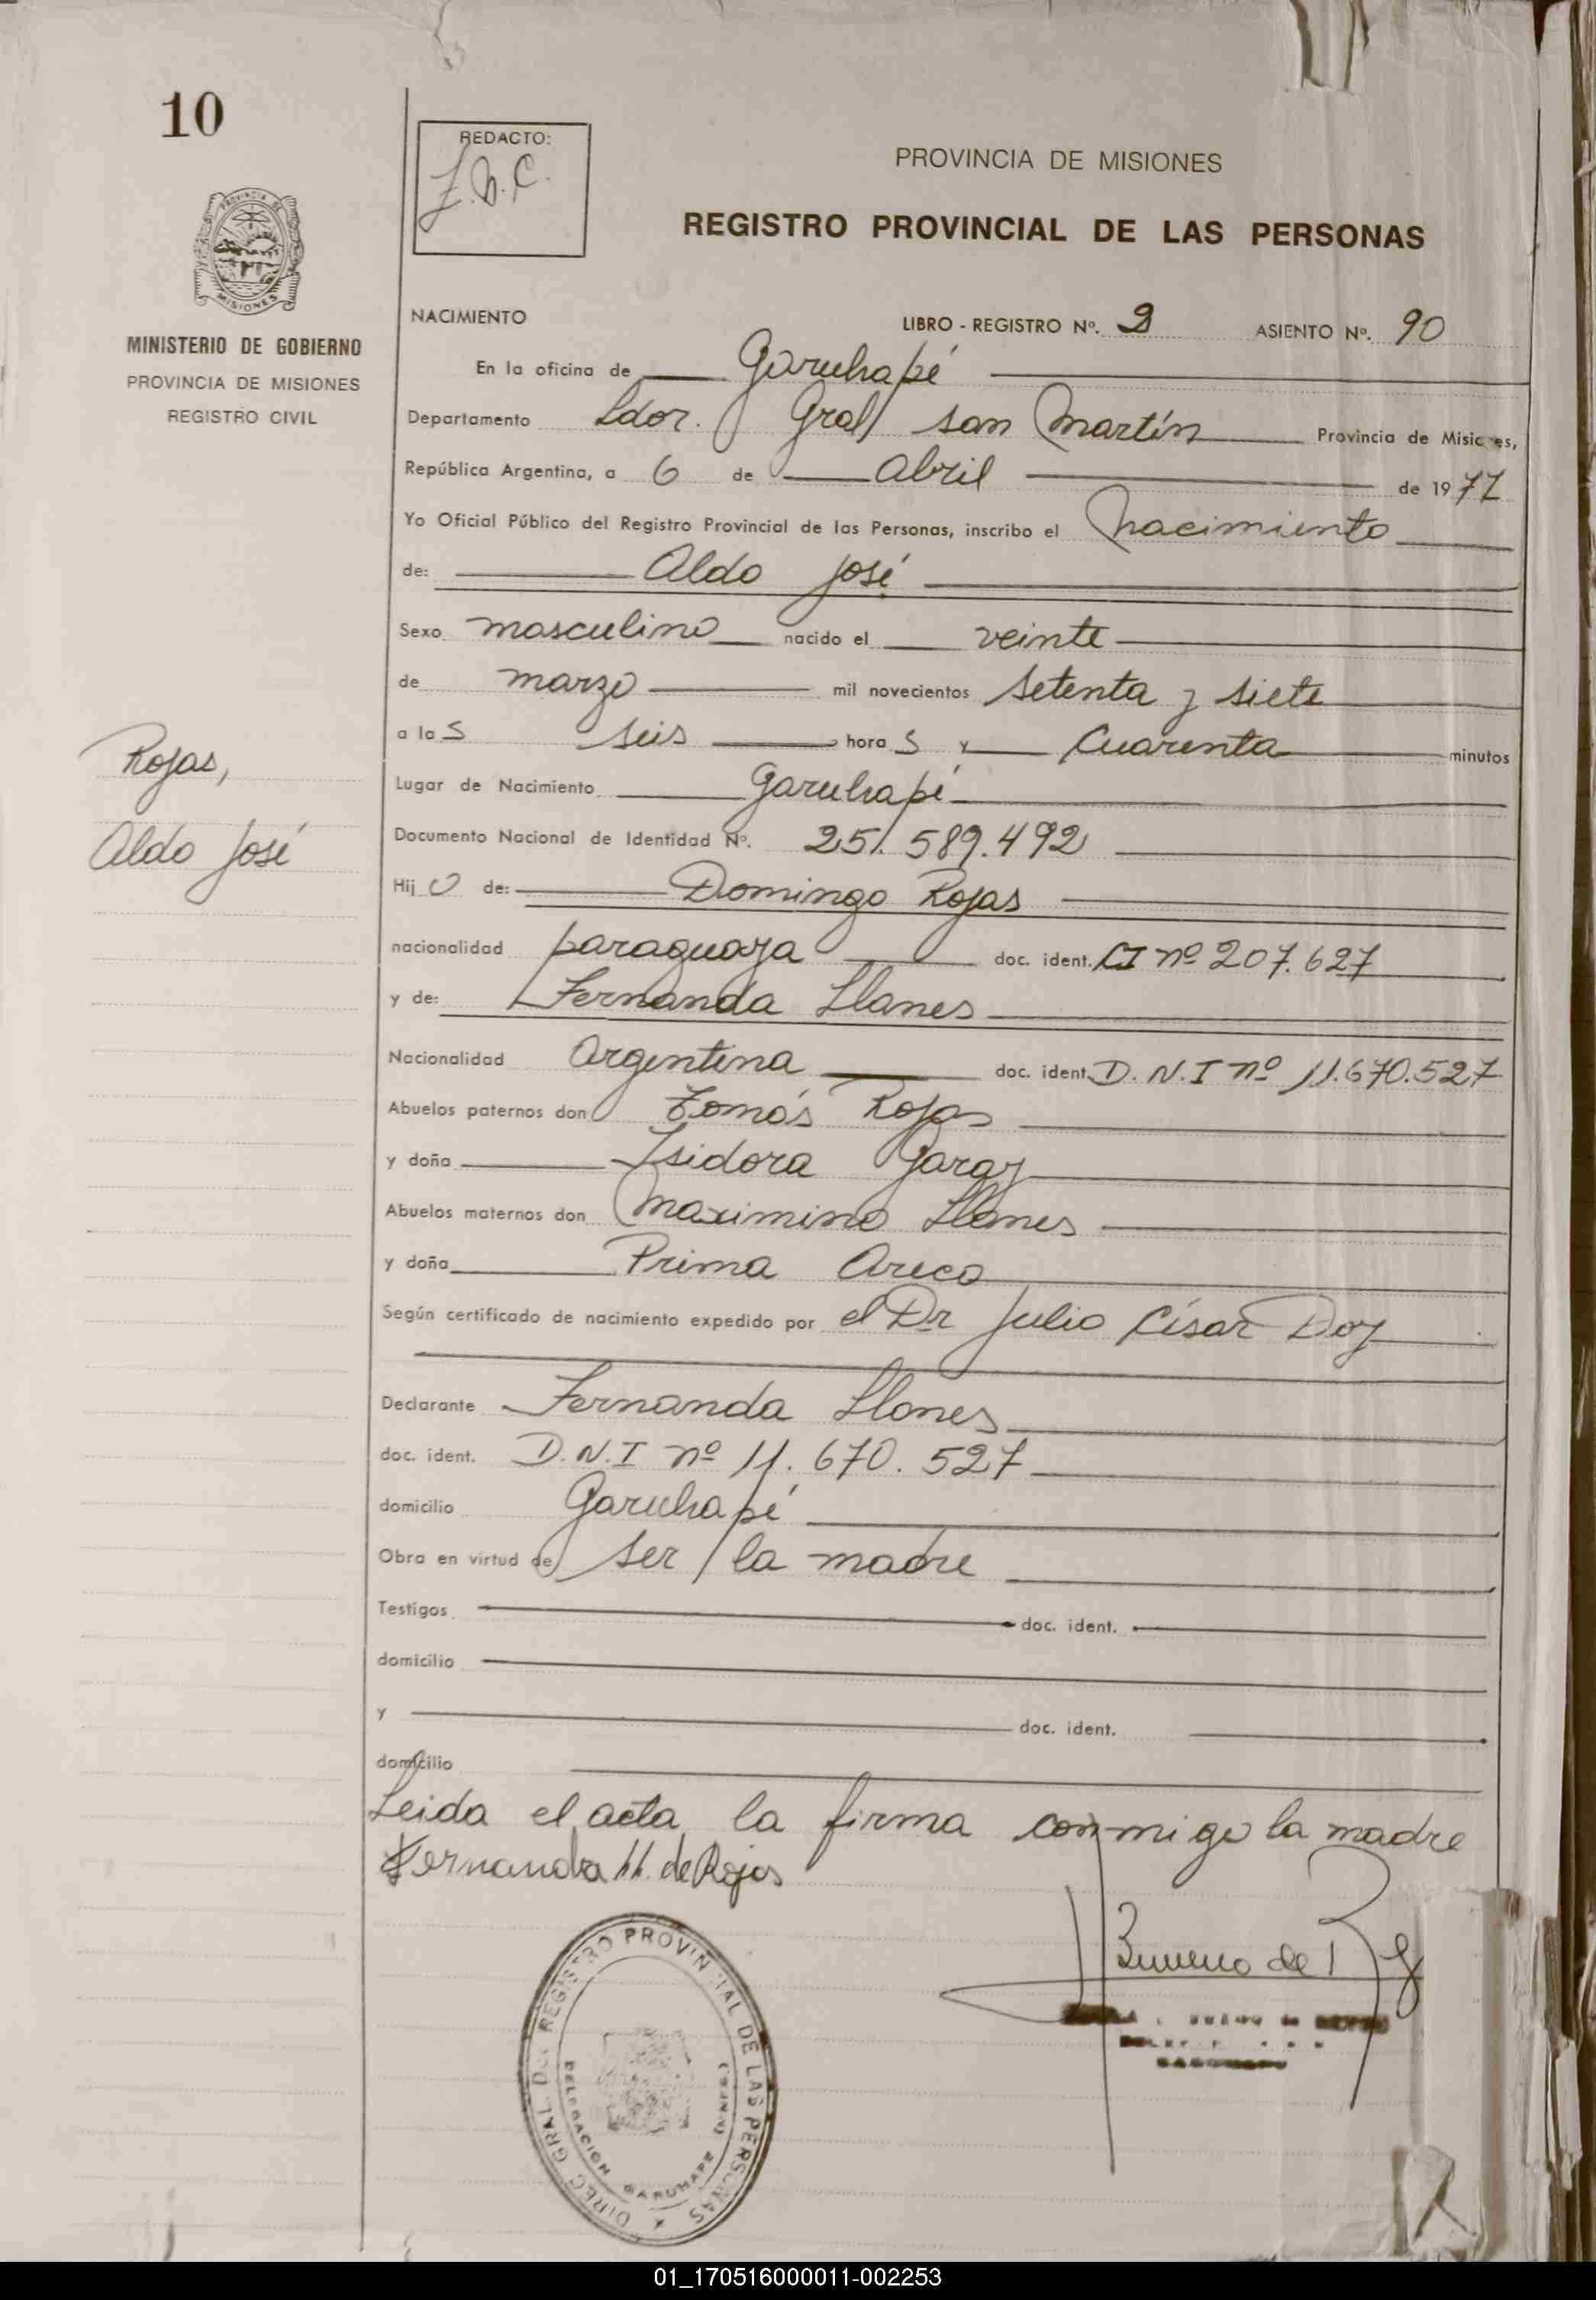 10
REDACTO:
J.B.C.
PROVINCIA DE MISIONES
REGISTRO PROVINCIAL DE LAS PERSONAS
PROVINCIA DE
MISIONES
MINISTERIO DE GOBIERNO
PROVINCIA DE MISIONES
REGISTRO CIVIL
NACIMIENTO LIBRO - REGISTRO Nº. 2 ASIENTO Nº. 90
En la oficina de Garuhapé
Departamento Ldor. Gral san Martín Provincia de Misiones,
República Argentina, a 6 de abril de 1977
Yo Oficial Público del Registro Provincial de las Personas, inscribo el nacimiento
de: Aldo José
Sexo masculino nacido el veinte
de marzo mil novecientos setenta y siete
a las seis horas y cuarenta minutos
Rojas,
Aldo José
Lugar de Nacimiento Garuhapé
Documento Nacional de Identidad Nº. 25.589.492
Hijo de: Domingo Rojas
nacionalidad paraguaya doc. ident. CI nº 207.627
y de: Fernanda Llanes
Nacionalidad Argentina doc. ident. D.N.I nº 11.670.527
Abuelos paternos don Tomás Rojas
y doña Isidora Garay
Abuelos maternos don Maximino Llanes
y doña Prima Areco
Según certificado de nacimiento expedido por el Dr Julio César Doy
Declarante Fernanda Llanes
doc. ident. D.N.I nº 11.670.527
domicilio Garuhapé
Obra en virtud de ser la madre
Testigos doc. ident.
domicilio
y doc. ident.
domicilio
Leida el acta la firma conmigo la madre
Fernanda Ll. de Rojas
DIREC GRAL DEL REGISTRO PROVINCIAL DE LAS PERSONAS
DELEGACION GARUHAPE
01_170516000011-002253